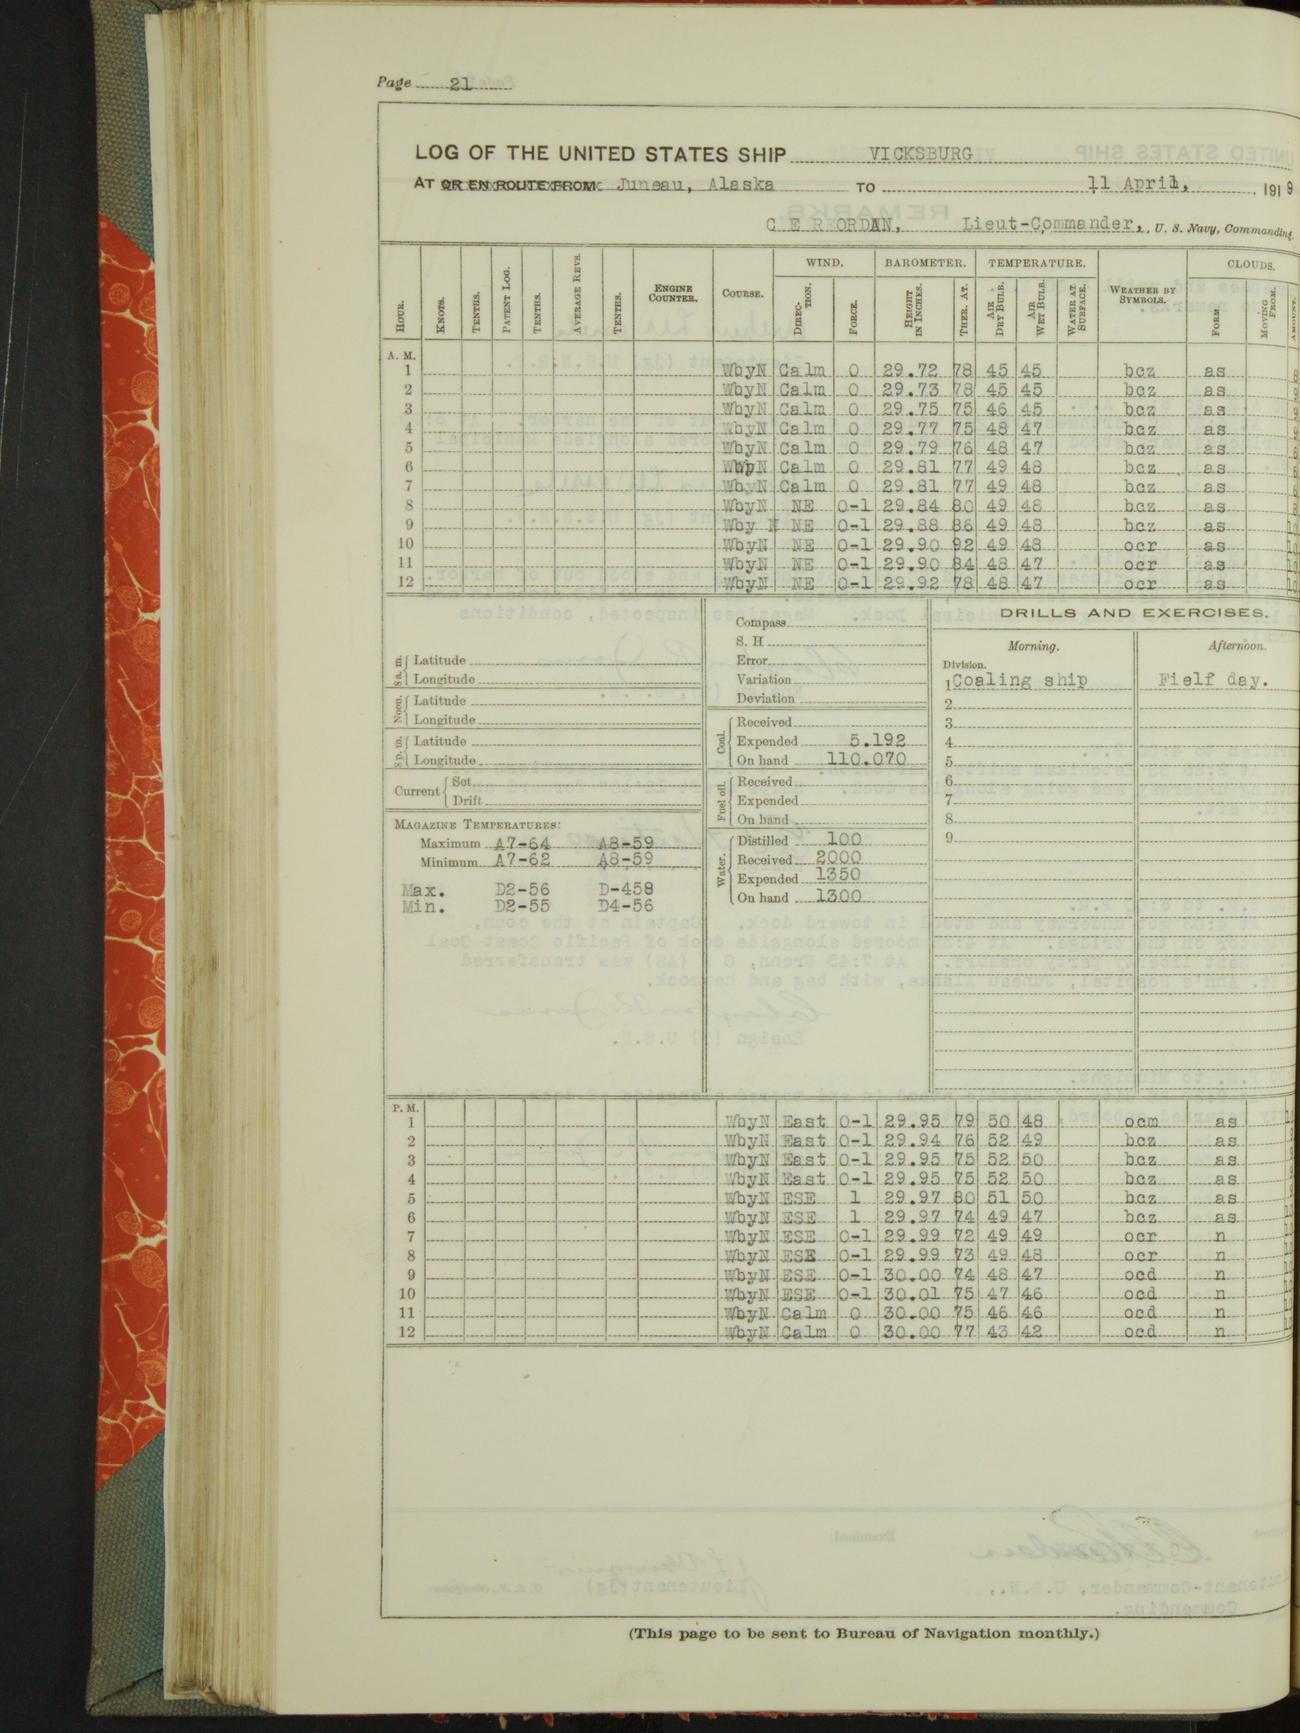 Page 21
LOG OF THE UNITED STATES SHIP VICKSBURG
AT OR EN ROUTE FROM Juneau, Alaska TO 11 April, 1919
C E REORDAN, Lieut-Commander, U. S. Navy, Commanding.
WIND. BAROMETER. TEMPERATURE. CLOUDS.
HOUR. KNOTS. TENTHS. PATENT LOG. TENTHS. AVERAGE REVS. TENTHS. ENGINE COUNTER. COURSE. DIRECTION. FORCE. HEIGHT IN INCHES. THER. AT. AIR DRY BULB. AIR WET BULB. WATER AT SURFACE. WEATHER BY SYMBOLS. FORM. MOVING FROM. AMOUNT.
A. M.
1 WbyN Calm 0 29.72 78 45 45 bcz as
2 WbyN Calm 0 29.73 78 45 45 bcz as
3 WbyN Calm 0 29.75 75 46 45 bcz as
4 WbyN Calm 0 29.77 75 48 47 bcz as
5 WbyN Calm 0 29.79 76 48 47 bcz as
6 WbyN Calm 0 29.81 77 49 48 bcz as
7 WbyN Calm 0 29.81 77 49 48 bcz as
8 WbyN NE 0-1 29.84 80 49 48 bcz as
9 Wby N NE 0-1 29.88 86 49 48 bcz as 10
10 WbyN NE 0-1 29.90 92 49 48 ocr as 10
11 WbyN NE 0-1 29.90 84 48 47 ocr as 10
12 WbyN NE 0-1 29.92 78 48 47 ocr as 10
8 a. m. Latitude
Longitude
Noon. Latitude
Longitude
8 p. m. Latitude
Longitude
Current Set
Drift
MAGAZINE TEMPERATURES:
Maximum A7-64 A8-59
Minimum A7-62 A8-59
Max. D2-56 D-458
Min. D2-55 D4-56
Compass
S. H
Error
Variation
Deviation
Coal. Received
Expended 5.192
On hand 110.070
Fuel oil. Received
Expended
On hand
Water. Distilled 100
Received 2000
Expended 1350
On hand 1300
DRILLS AND EXERCISES.
Morning. Afternoon.
Division.
1 Coaling ship Fielf day.
2
3
4
5
6
7
8
9
P. M.
1 WbyN East 0-1 29.95 79 50 48 ocm as
2 WbyN East 0-1 29.94 76 52 49 bcz as
3 WbyN East 0-1 29.95 75 52 50 bcz as
4 WbyN East 0-1 29.95 75 52 50 bcz as
5 WbyN ESE 1 29.97 80 51 50 bcz as
6 WbyN ESE 1 29.97 74 49 47 bcz as
7 WbyN ESE 0-1 29.99 72 49 49 ocr n
8 WbyN ESE 0-1 29.99 73 49 48 ocr n
9 WbyN ESE 0-1 30.00 74 48 47 ocd n
10 WbyN ESE 0-1 30.01 75 47 46 ocd n
11 WbyN Calm 0 30.00 75 46 46 ocd n
12 WbyN Calm 0 30.00 77 43 42 ocd n
(This page to be sent to Bureau of Navigation monthly.)